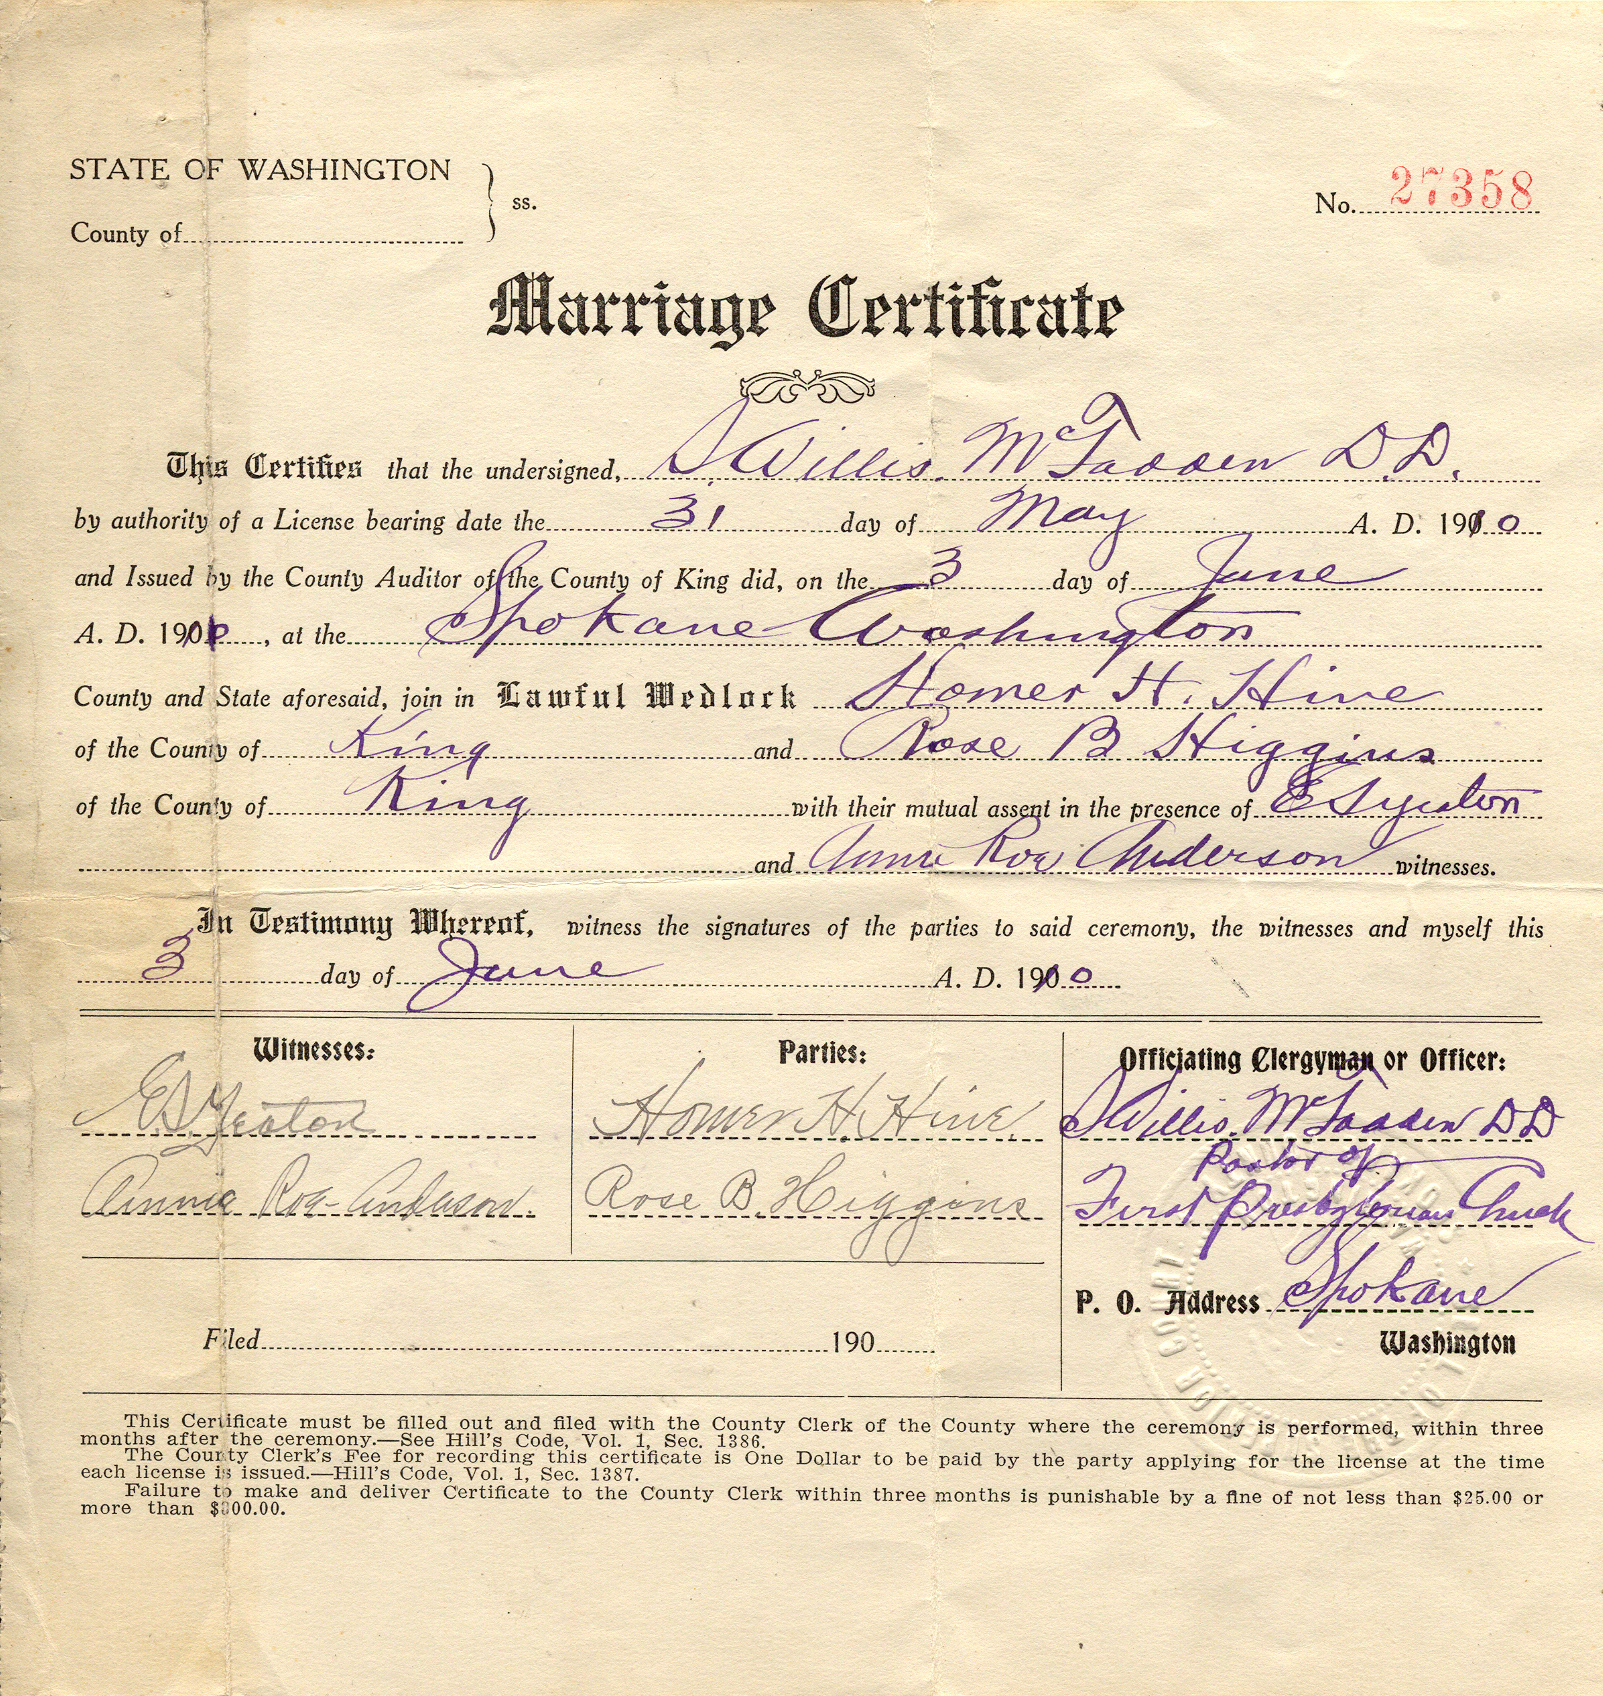 STATE OF WASHINGTON
County of
ss.
No. 27358
Marriage Certificate
This Certifies that the undersigned, S. Willis McFadden D.D.
by authority of a License bearing date the 31 day of May A. D. 1910
and Issued by the County Auditor of the County of King did, on the 3 day of June
A. D. 1910, at the Spokane Washington
County and State aforesaid, join in Lawful Wedlock Homer H. Hine
of the County of King and Rose B Higgins
of the County of King with their mutual assent in the presence of E S Yeaton
and Annie Roe Anderson witnesses.
In Testimony Whereof, witness the signatures of the parties to said ceremony, the witnesses and myself this
3 day of June A. D. 1910
Witnesses:
E. S. Yeaton
Annie Roe-Anderson.
Parties:
Homer H. Hine.
Rose B. Higgins
Officiating Clergyman or Officer:
S. Willis McFadden DD
Pastor of
First Presbyterian Church
P. O. Address Spokane
Washington
Filed 190
This Certificate must be filled out and filed with the County Clerk of the County where the ceremony is performed, within three
months after the ceremony.—See Hill's Code, Vol. 1, Sec. 1386.
The County Clerk's Fee for recording this certificate is One Dollar to be paid by the party applying for the license at the time
each license is issued.—Hill's Code, Vol. 1, Sec. 1387.
Failure to make and deliver Certificate to the County Clerk within three months is punishable by a fine of not less than $25.00 or
more than $300.00.